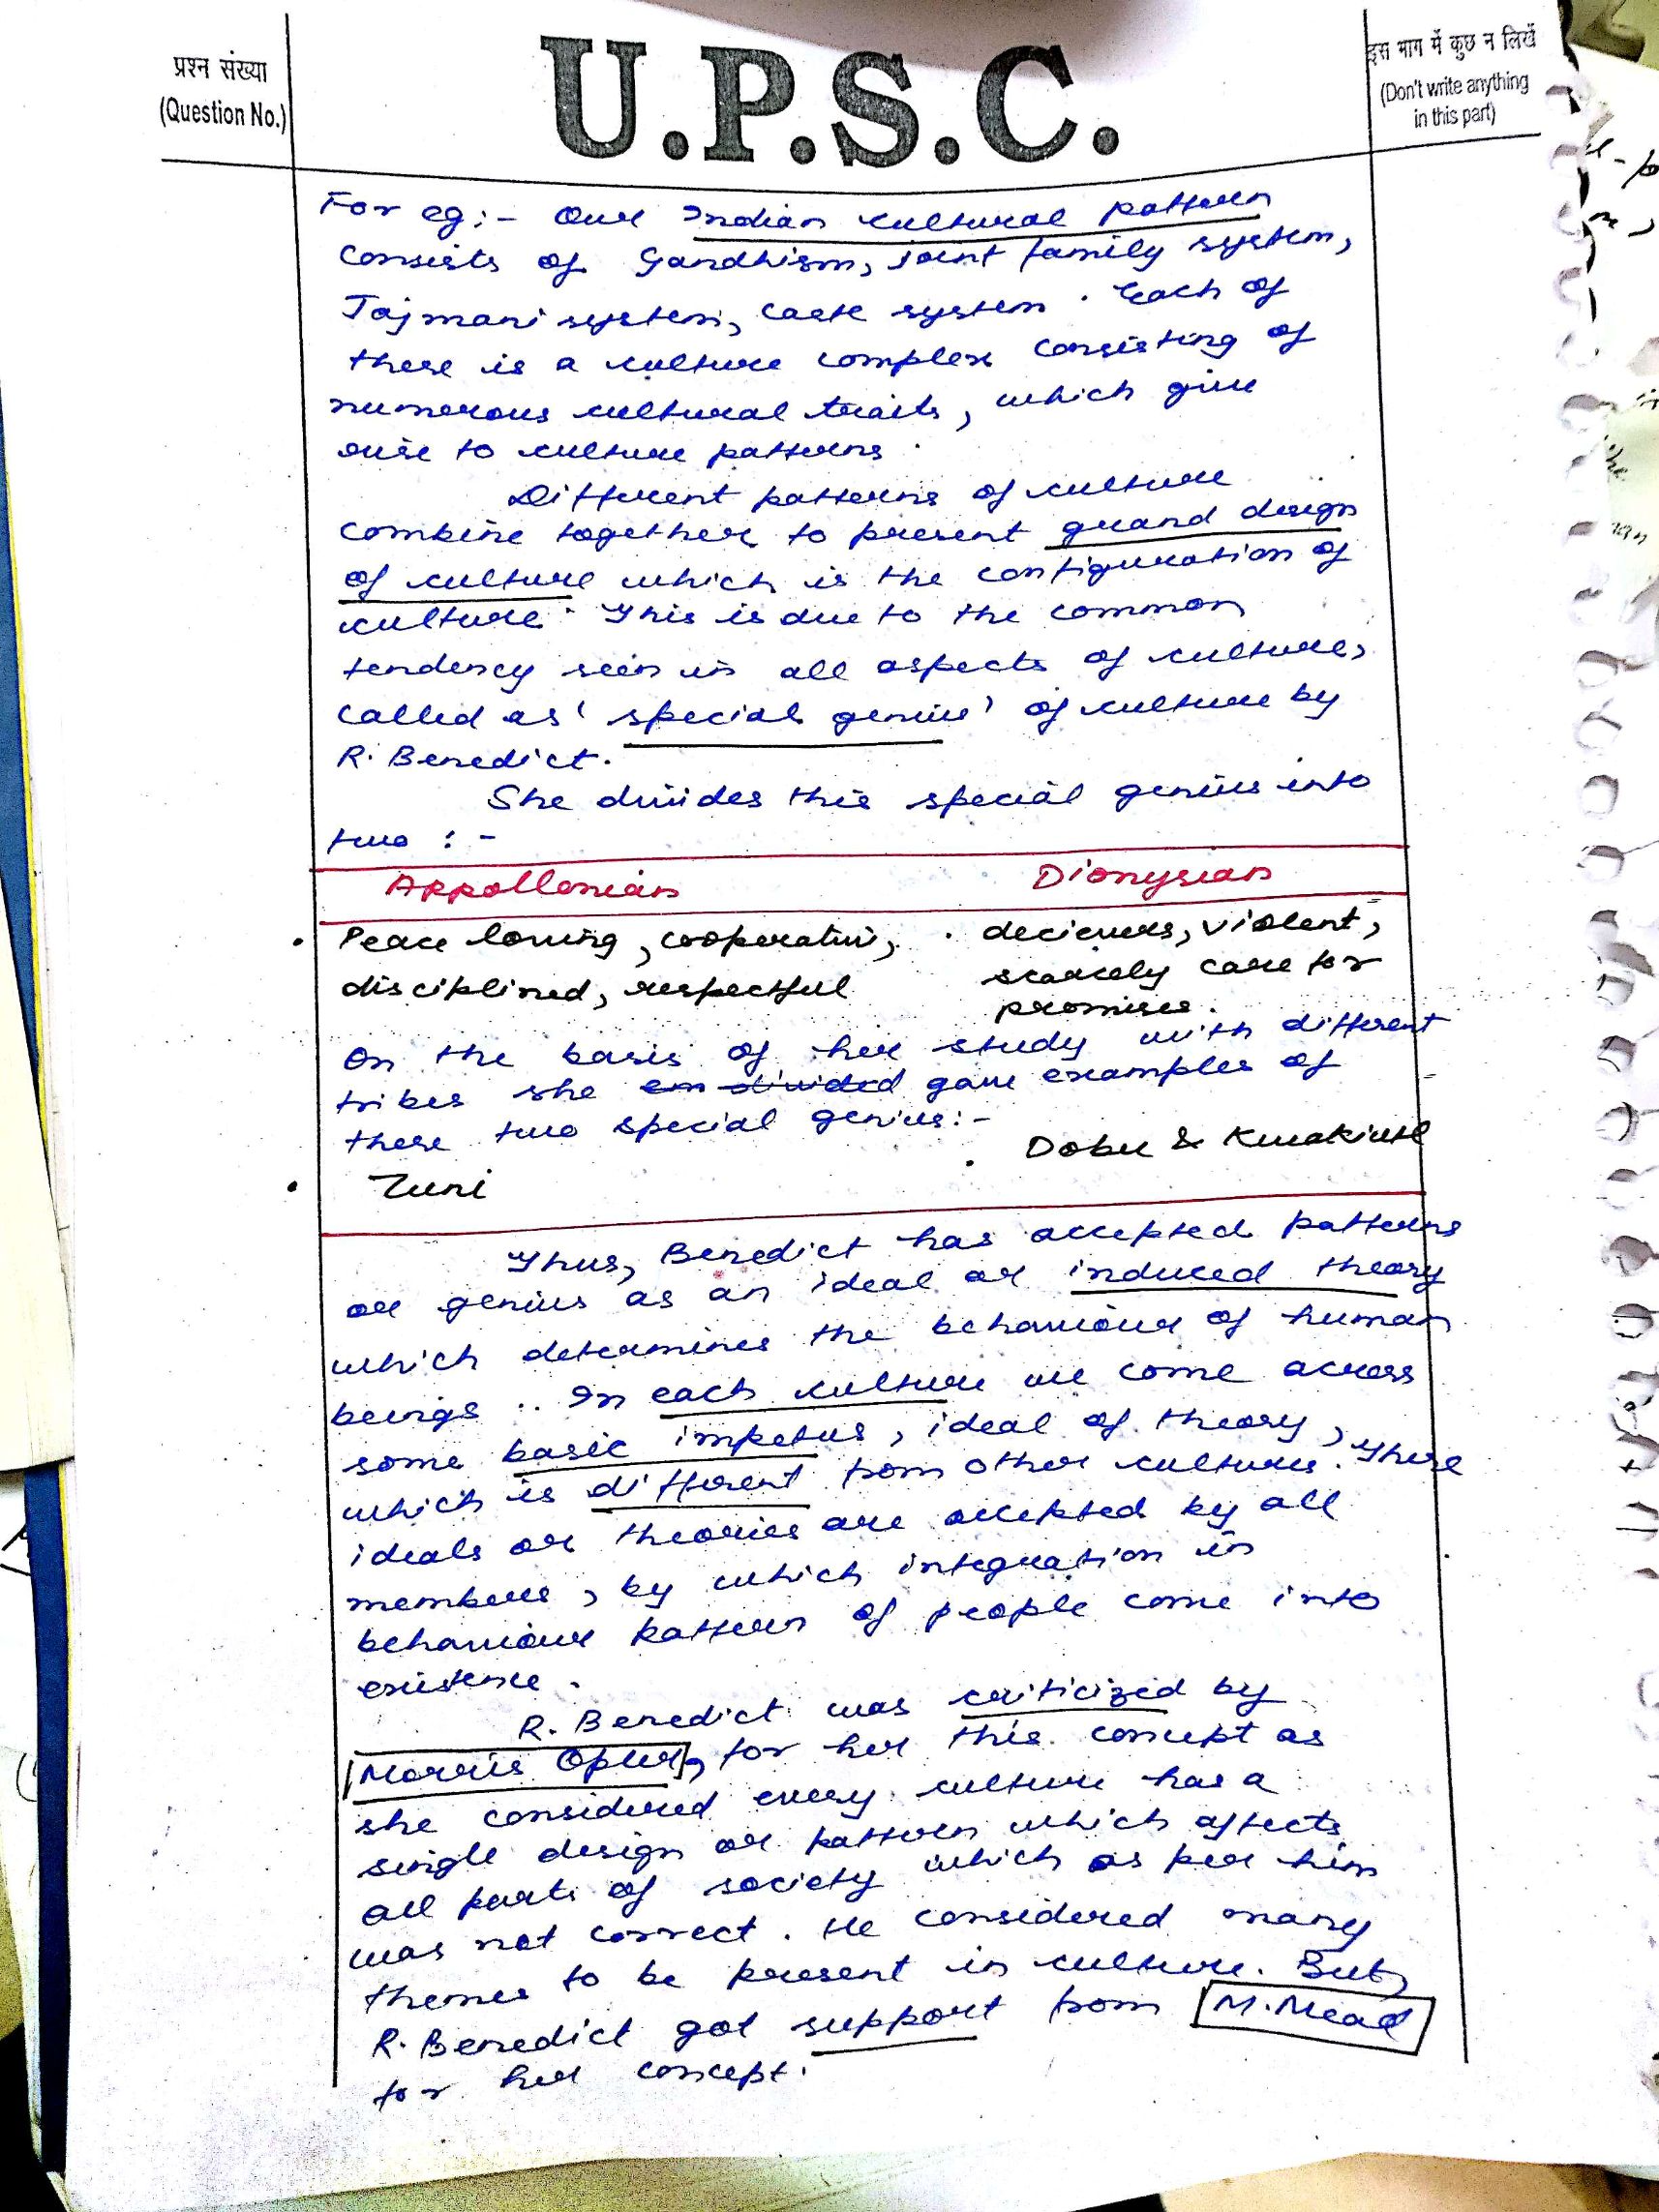 प्रश्न संख्या
(Question No.)
U.P.S.C.
इस भाग में कुछ न लिखें
(Don't write anything
in this part)
For eg:- Our Indian cultural pattern
consists of Gandhism, joint family system,
Jajmani system, caste system. Each of
these is a culture complex consisting of
numerous cultural traits, which give
rise to culture patterns.
Different patterns of culture
combine together to present grand design
of culture which is the configuration of
culture. This is due to the common
tendency seen in all aspects of culture,
called as 'special genius' of culture by
R. Benedict.
She divides this special genius into
two :-
Appollonian Dionysian
• Peace loving, cooperative, • decievers, violent,
disciplined, respectful scarcely care for
promises.
On the basis of her study with different
tribes she gave examples of
these two special genius:-
• Dobu & Kwakiutl
• Zuni
Thus, Benedict has accepted patterns
or genius as an ideal or induced theory
which determines the behaviour of human
beings .. In each culture we come across
some basic impetus, ideal of theory,
which is different from other cultures. These
ideals or theories are accepted by all
members, by which integration in
behaviour pattern of people come into
existence.
R. Benedict was criticized by
Morris Opler, for her this concept as
she considered every culture has a
single design or pattern which affects
all parts of society which as per him
was not correct. He considered many
themes to be present in culture. But,
R. Benedict got support from M. Mead
for her concept.